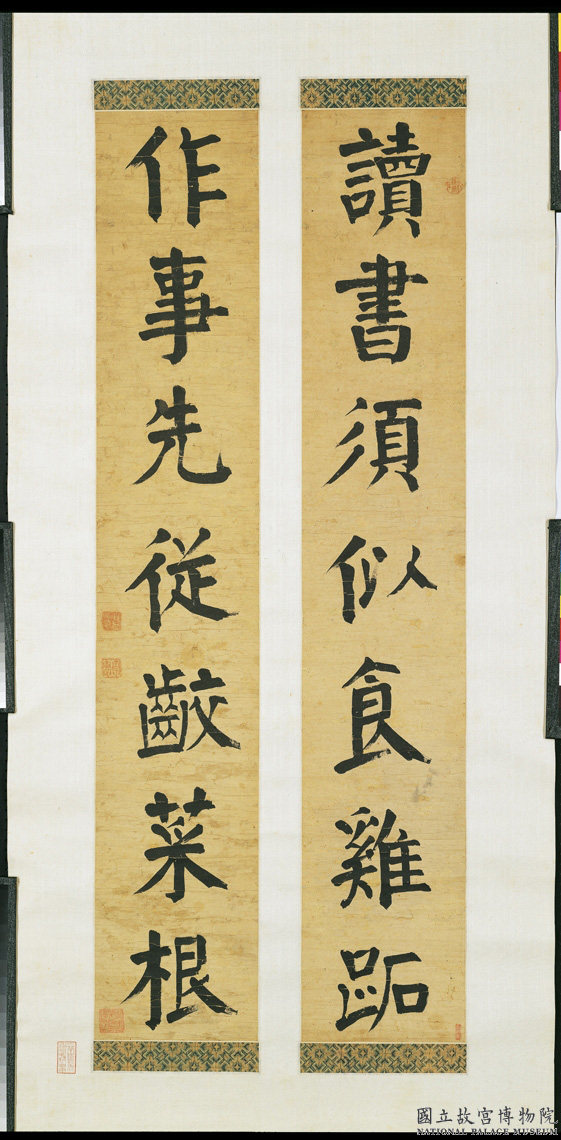 讀書須似食雞跖
作事先従齩菜根
國立故宮博物院
NATIONAL PALACE MUSEUM